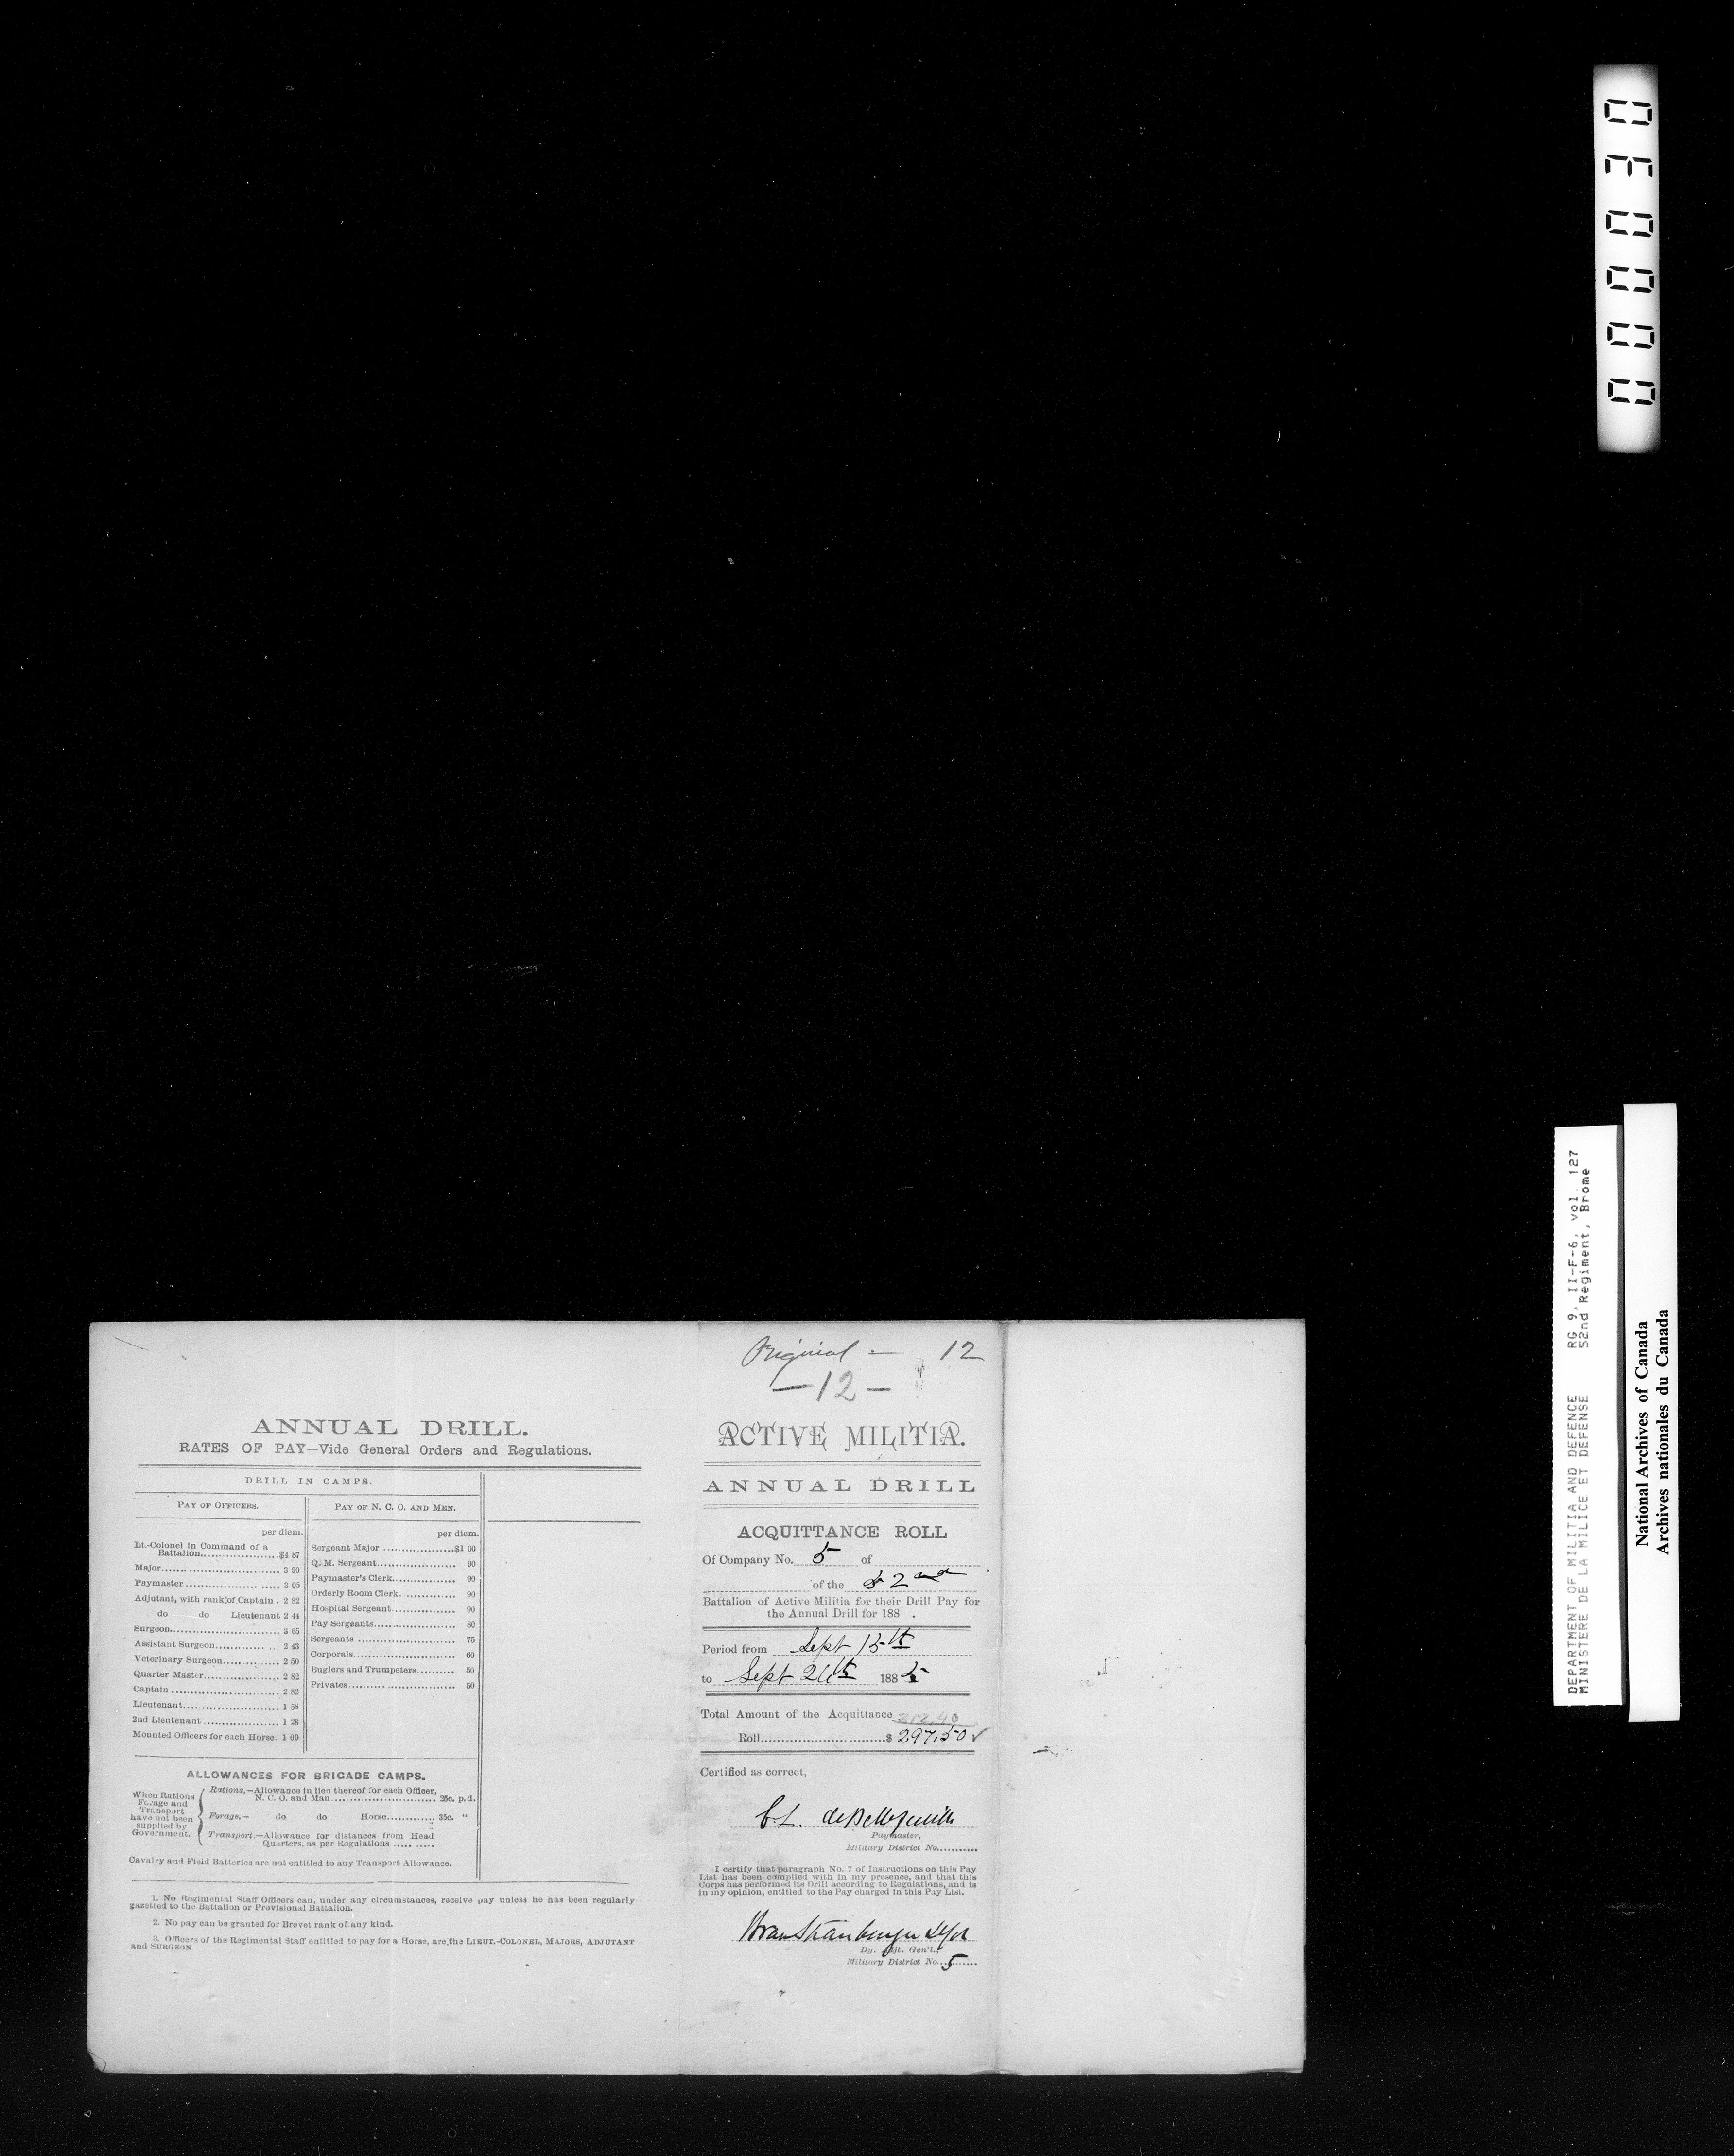 Original — 12
—12—
ANNUAL DRILL.
RATES OF PAY—Vide General Orders and Regulations.
DRILL IN CAMPS.
PAY OF OFFICERS.
per diem.
Lt.-Colonel in Command of a
Battalion..................$4 87
Major............................ 3 90
Paymaster ........................ 3 05
Adjutant, with rank of Captain . 2 82
do do Lieutenant 2 44
Surgeon............................ 3 65
Assistant Surgeon.............. 2 43
Veterinary Surgeon............ 2 50
Quarter Master.................. 2 82
Captain ............................ 2 82
Lieutenant........................ 1 58
2nd Lieutenant .................. 1 28
Mounted Officers for each Horse. 1 00
PAY OF N. C. O. AND MEN.
per diem.
Sergeant Major ................$1 00
Q. M. Sergeant.................. 90
Paymaster's Clerk.............. 90
Orderly Room Clerk............ 90
Hospital Sergeant.............. 90
Pay Sergeants.................... 80
Sergeants ........................ 75
Corporals.......................... 60
Buglers and Trumpeters........ 50
Privates............................ 50
ALLOWANCES FOR BRIGADE CAMPS.
When Rations
Forage and
Transport
have not been
supplied by
Government.
Rations,—Allowance in lieu thereof for each Officer,
N. C. O. and Man ........................ 25c. p.d.
Forage,— do do Horse............ 35c. "
Transport.—Allowance for distances from Head
Quarters, as per Regulations ..... .....
Cavalry and Field Batteries are not entitled to any Transport Allowance.
1. No Regimental Staff Officers can, under any circumstances, receive pay unless he has been regularly
gazetted to the Battalion or Provisional Battalion.
2. No pay can be granted for Brevet rank of any kind.
3. Officers of the Regimental Staff entitled to pay for a Horse, are the LIEUT.-COLONEL, MAJORS, ADJUTANT
and SURGEON
ACTIVE MILITIA.
ANNUAL DRILL
ACQUITTANCE ROLL
Of Company No. 5 of
of the 52nd
Battalion of Active Militia for their Drill Pay for
the Annual Drill for 188 .
Period from Sept 15th
to Sept 26th 1885
Total Amount of the Acquittance 212.40
Roll..............................$ 297.50 ✓
Certified as correct,
C. L.
Paymaster,
Military District No...........
I certify that paragraph No. 7 of Instructions on this Pay
List has been complied with in my presence, and that this
Corps has performed its Drill according to Regulations, and is
in my opinion, entitled to the Pay charged in this Pay List.
Dy. Adjt. Gen'l.,
Military District No. 5
000030
DEPARTMENT OF MILITIA AND DEFENCE RG 9, II-F-6, vol. 127
MINISTERE DE LA MILICE ET DEFENSE 52nd Regiment, Brome
National Archives of Canada
Archives nationales du Canada